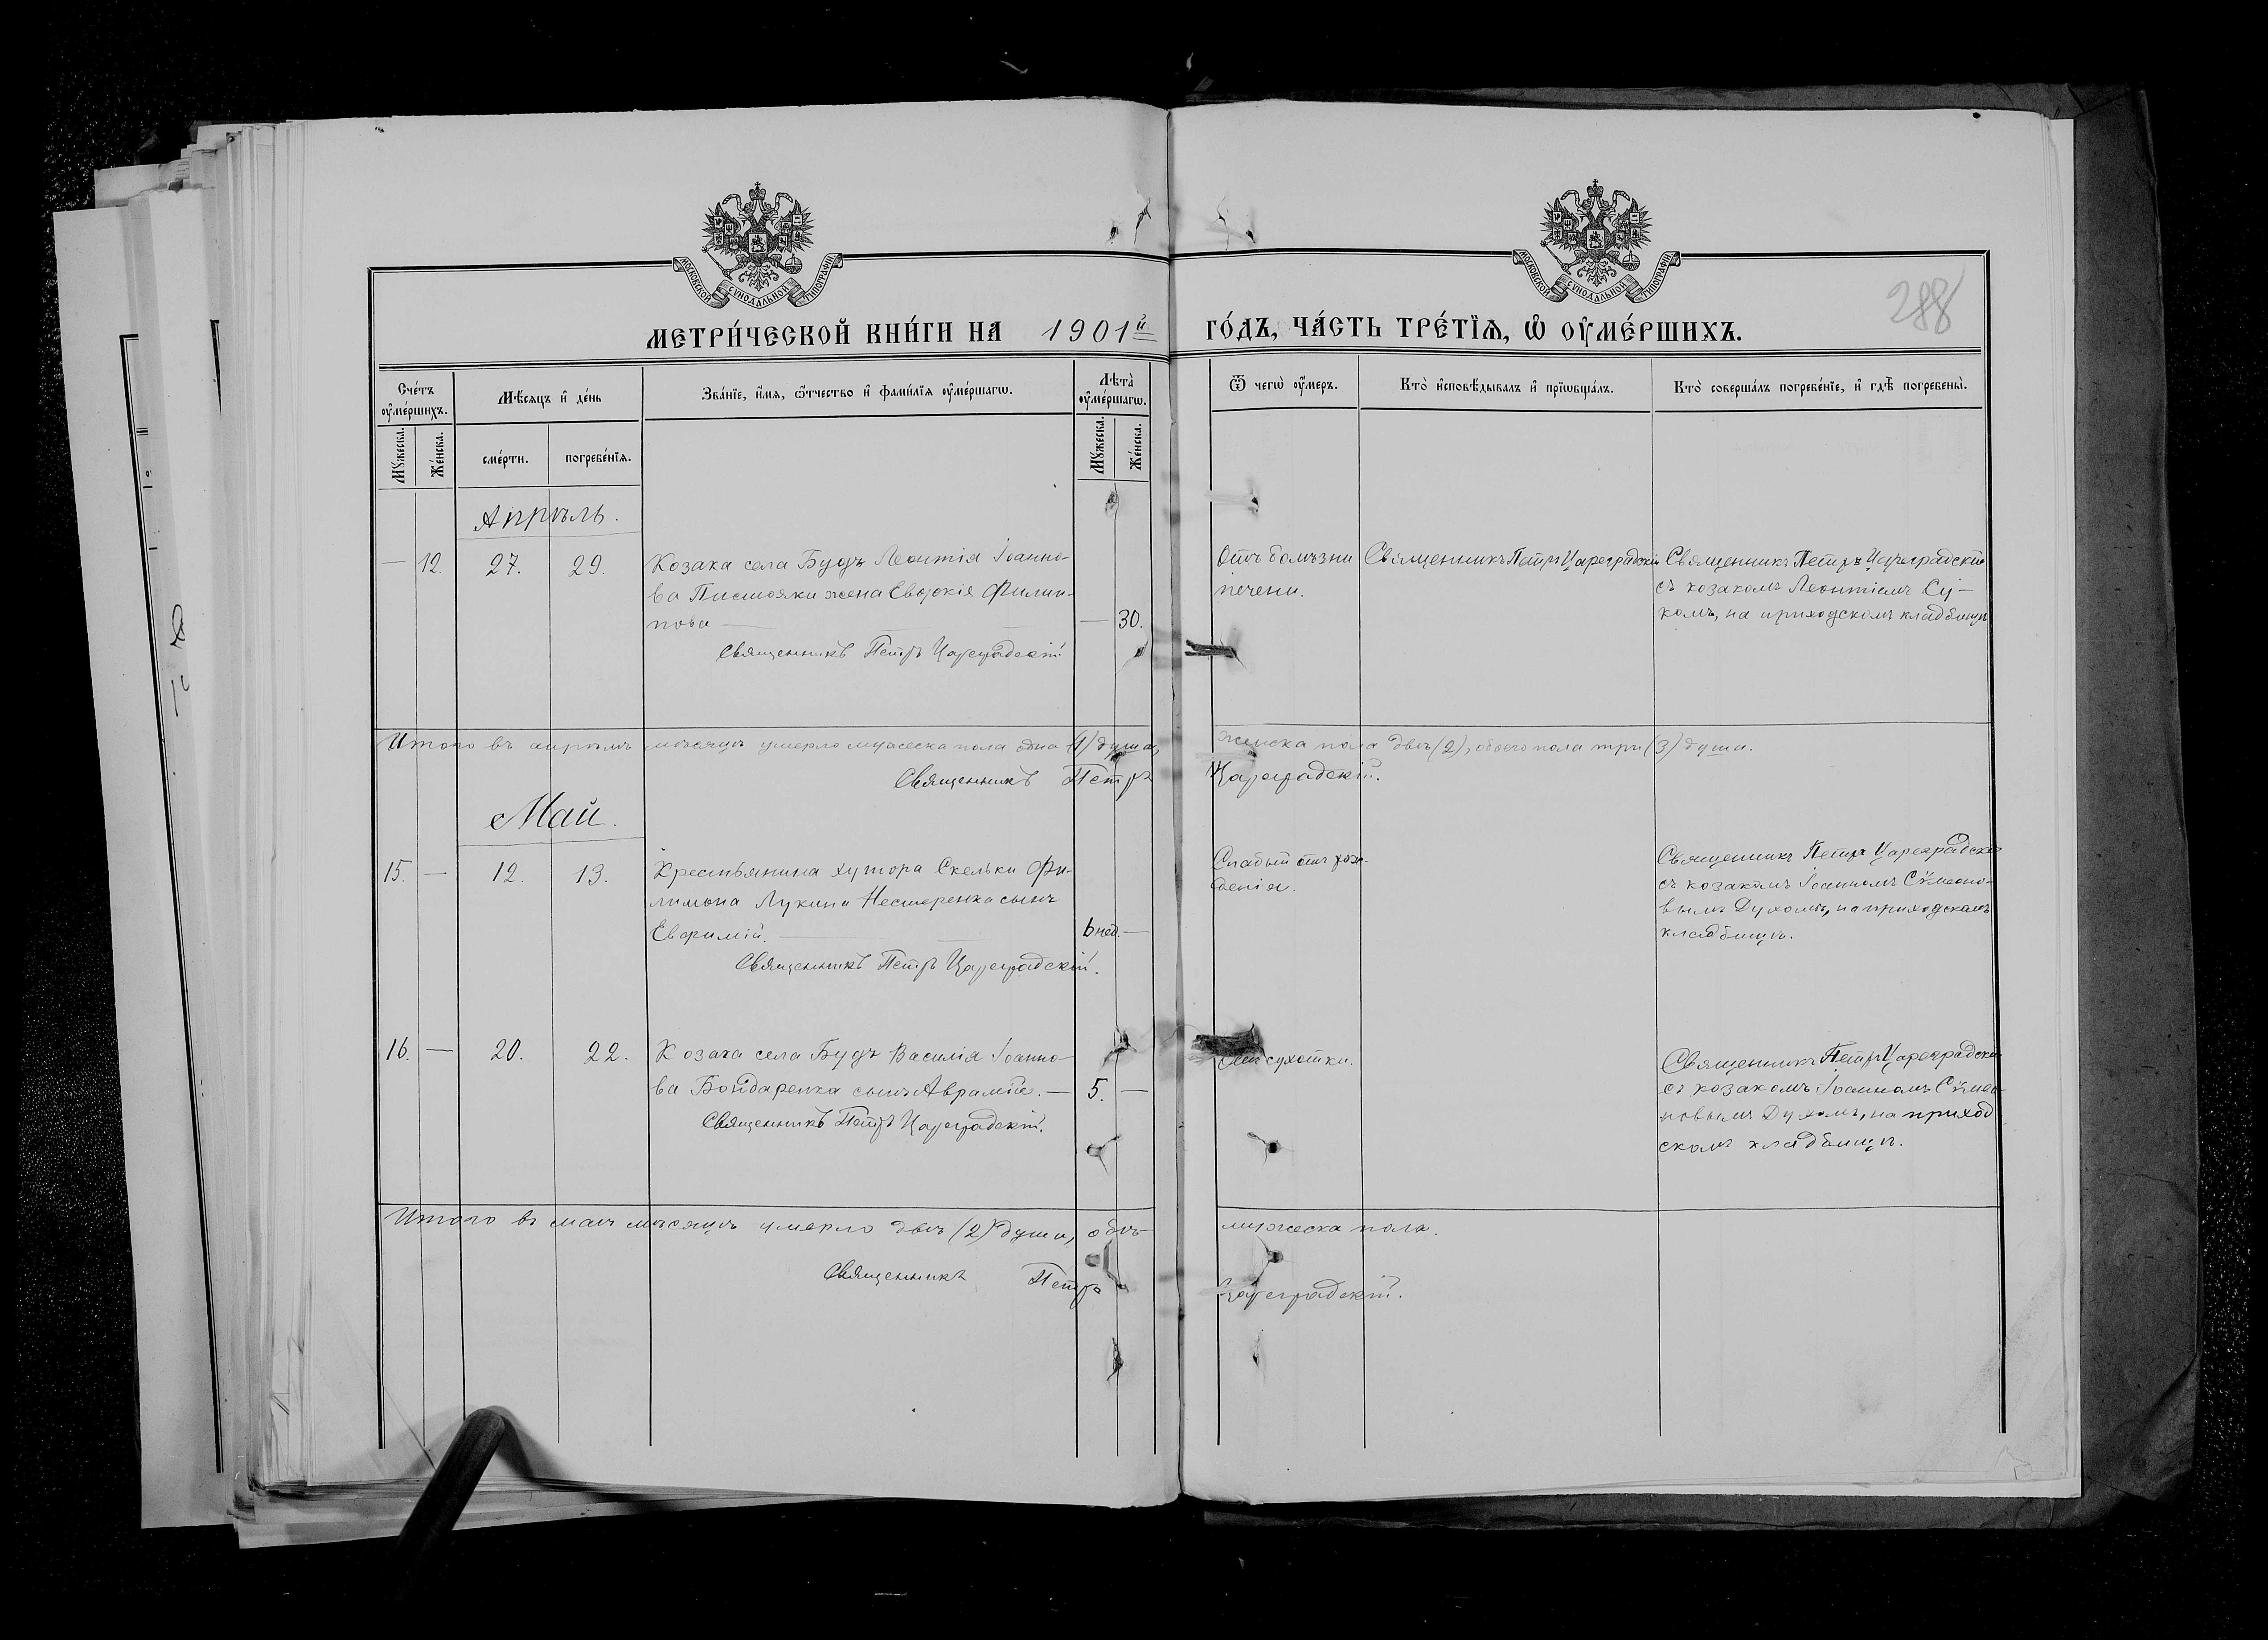 МОСКОВСКОЙ СѴНОДАЛЬНОЙ ТИПОГРАФІИ
МОСКОВСКОЙ СѴНОДАЛЬНОЙ ТИПОГРАФІИ
288
МЕТРИ́ЧЕСКОЙ КНИ́ГИ НА 1901й ГО́ДЪ, ЧА́СТЬ ТРЕ́ТЇѦ, Ѡ ОУМЕ́РШИХЪ.
Сче́тъ оуме́ршихъ.
Мꙋ́жеска.
Же́нска.
Мѣ́сяцъ и҆ де́нь
сме́рти.
погребе́нїѧ.
Зва́нїе, и҆́мѧ, ѻ҆́тчество и҆ фами́лїѧ оуме́ршагѡ.
Лѣ̀та оуме́ршагѡ.
Мꙋ́жеска.
Же́нска.
Ѿ чегѡ̀ оу҆́меръ.
Кто̀ и҆сповѣ́дывалъ и҆ прїѡбща́лъ.
Кто̀ соверша́лъ погребе́нїе, и҆ гдѣ̀ погребены̀.
Апрѣль.
— 12. 27. 29.
Козака села Будъ Леонтія Іоанно-
ва жена Евдокія Филип-
пова — — 30.
Священникъ Петръ Цареградскій
Отъ болѣзни
печени.
Священникъ Петръ Цареградскій
Священникъ Петръ Цареградскій
съ козакомъ Леонтіемъ Су-
комъ, на приходскомъ кладбищѣ
Итого въ апрѣлѣ мѣсяцѣ умерло мужеска пола одна (1) душа, женска пола двѣ (2), обоего пола три (3) души.
Священникъ Петръ Цареградскій.
Май.
15. — 12. 13.
Крестьянина хутора Скельки Фи-
лимона Лукина Нестеренка сынъ
Евѳимій. — 6 нед. —
Священникъ Петръ Цареградскій.
Слабый отъ рож-
денія.
Священникъ Петръ Цареградскій
съ козакомъ Іоанномъ Сѵмеоно-
вымъ Духомъ, на приходскомъ
кладбищѣ.
16. — 20. 22.
Козака села Будъ Василія Іоанно-
ва Бондаренка сынъ Аврамій. — 5. —
Священникъ Петръ Цареградскій.
Отъ сухотки.
Священникъ Петръ Цареградскій
съ козакомъ Іоанномъ Сѵмео-
новымъ Духомъ, на приход
скомъ кладбищѣ.
Итого въ маѣ мѣсяцѣ умерло двѣ (2) души, обѣ мужеска пола.
Священникъ Петръ Цареградскій.